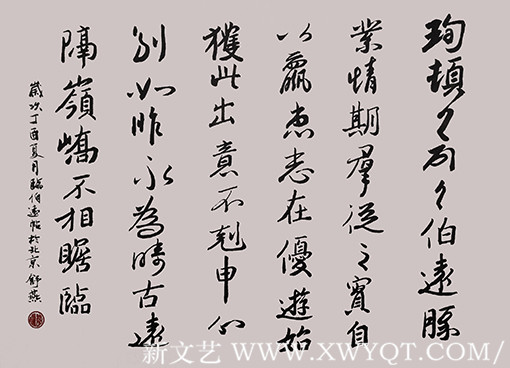 珣頓首頓首伯遠勝
業情期羣從之寶自
以羸患志在優遊始
獲此出意不剋申分
別如昨永為疇古遠
隔嶺嶠不相瞻臨
歲次丁酉夏月臨伯遠帖於北京 舒燕
新文艺 WWW.XWYQT.COM